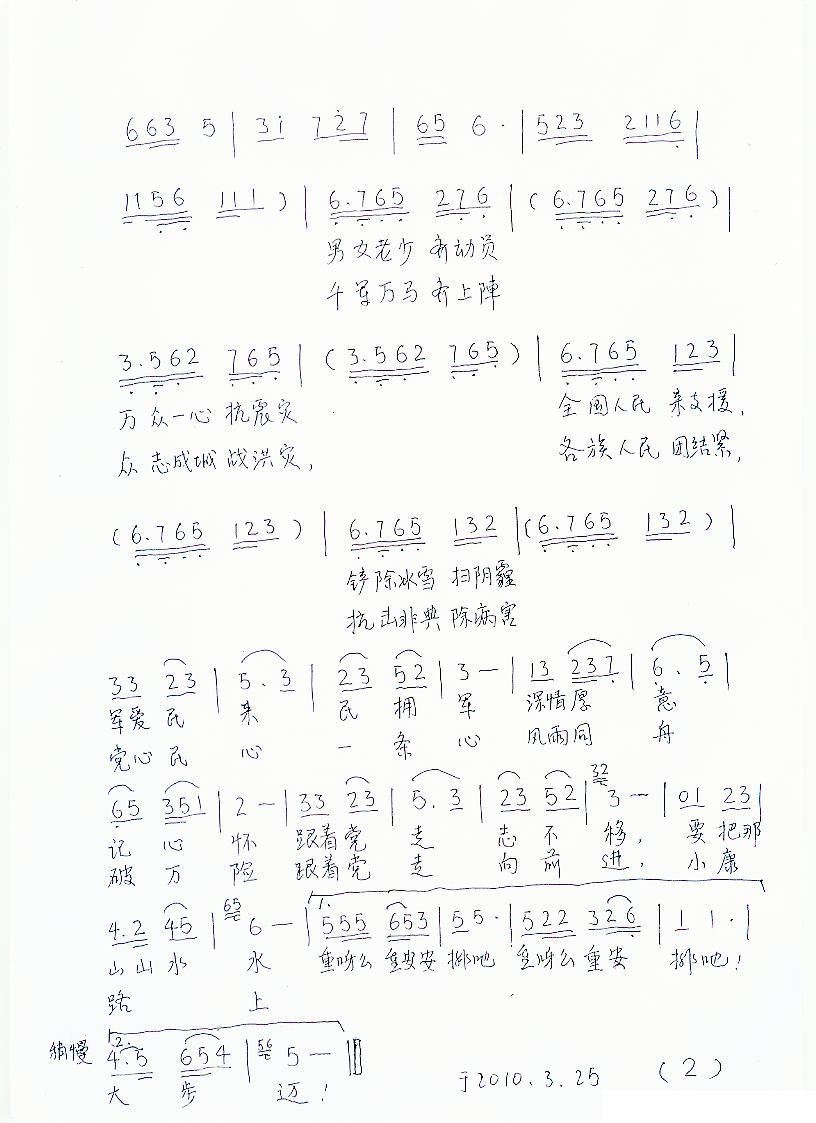 663 5 | 3i 727 | 65 6· | 523 2116 |
1156 111 ) | 6.765 276 | ( 6.765 276 ) |
男女老少 齐动员
千军万马 齐上陣
3.562 765 | ( 3.562 765 ) | 6.765 123 |
万众一心 抗震灾 全国人民 来支援,
众志成城 战洪灾, 各族人民 团结紧,
( 6.765 123 ) | 6.765 132 | ( 6.765 132 ) |
铲除冰雪 扫阴霾
抗击非典 除病害
33 23 | 5.3 | 23 52 | 3 — | 13 237 | 6.5 |
军爱民 来 民拥 军 深情厚 意
党心民 心 一条 心 风雨同 舟
65 351 | 2 — | 33 23 | 5.3 | 23 52 | 32 3 — | 01 23 |
记心 怀 跟着党 走 志不 移, 要把那
破万 险 跟着党 走 向前 进, 小康
4.2 45 | 65 6 — | 1. 555 653 | 55· | 522 326 | 1 1· |
山山水 水 重呀么重安安 排吧 重呀么重安 排吧!
路 上
稍慢 2. 4.5 654 | 56 5 — ‖
大步 迈! 于2010.3.25 (2)